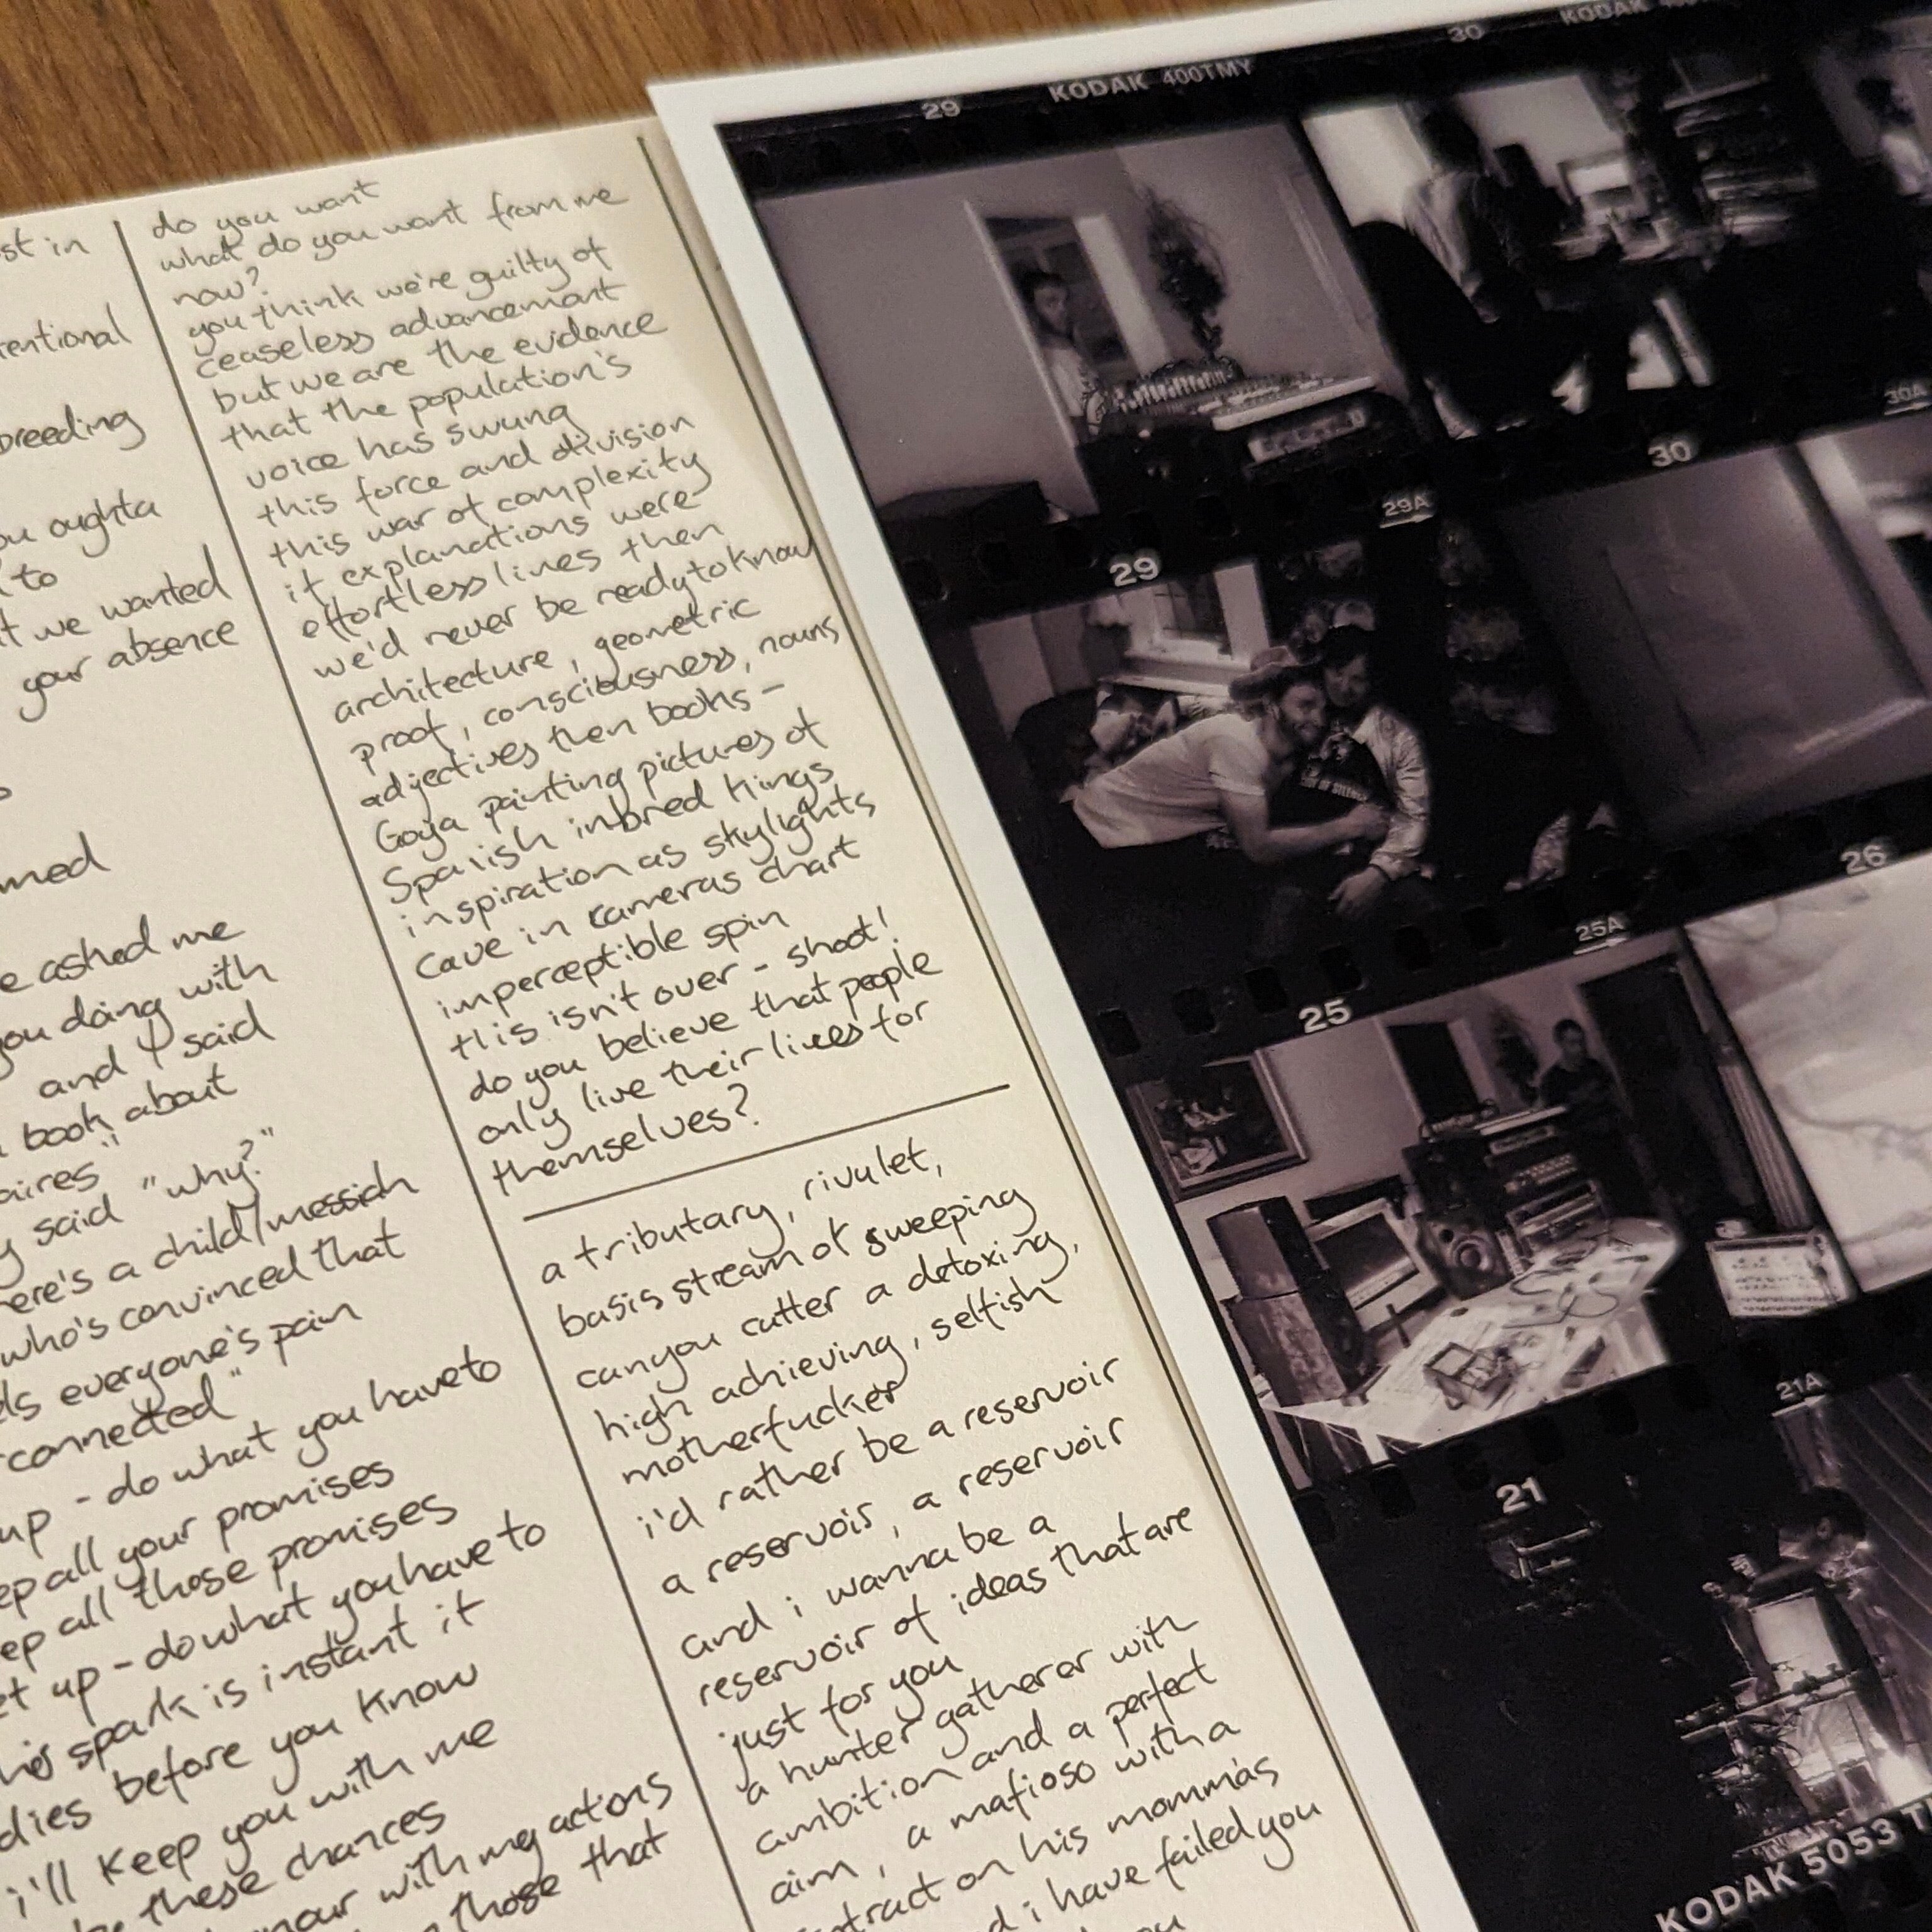 st in
entional
breeding
ou oughta
to
t we wanted
your absence
med
e asked me
you doing with
and i said
book about
aires"
said "why?"
ere's a child/messiah
who's convinced that
ls everyone's pain
connected"
up - do what you have to
ep all your promises
ep all those promises
et up - do what you have to
spark is instant it
dies before you know
i'll keep you with me
these chances
with my actions
those that
do you want
what do you want from me
now?
you think we're guilty of
ceaseless advancement
but we are the evidence
that the population's
voice has swung
this force and division
this war of complexity
if explanations were
effortless lines then
we'd never be ready to know
architecture, geometric
proof, consciousness, nouns
adjectives then books -
Goya painting pictures of
Spanish inbred kings
inspiration as skylights
cave in cameras chart
imperceptible spin
this isn't over - shoot!
do you believe that people
only live their lives for
themselves?
a tributary, rivulet,
basis stream of sweeping
can you cutter a detoxing,
high achieving, selfish
motherfucker
i'd rather be a reservoir
a reservoir, a reservoir
and i wanna be a
reservoir of ideas that are
just for you
a hunter gatherer with
ambition and a perfect
aim, a mafioso with a
on his momma's
i have failed you
29 KODAK 400TMY 30 KODAK
29 29A 30 30A
25 25A 26
21 21A
KODAK 5053